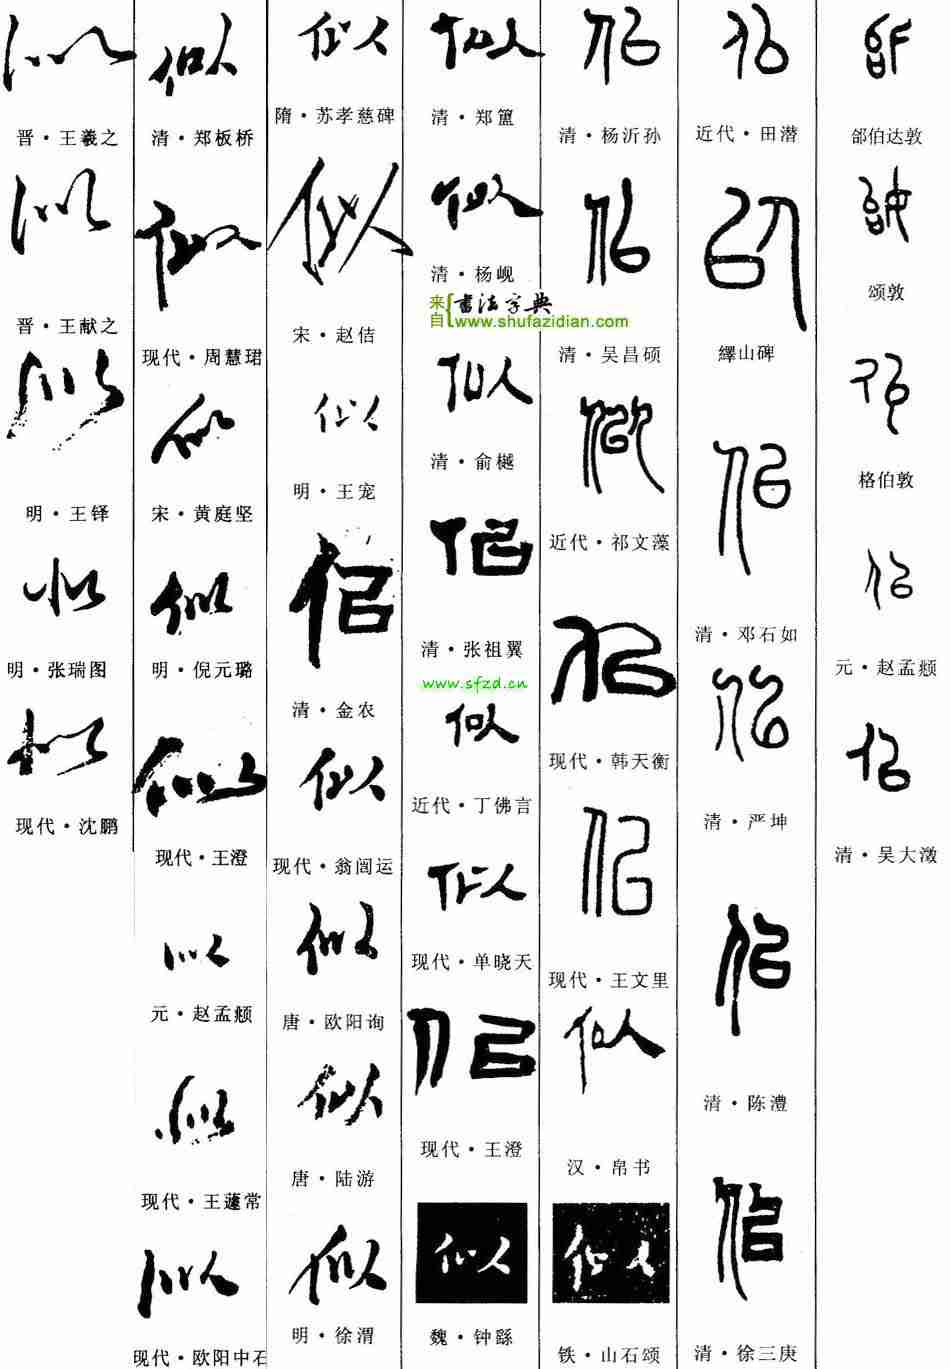 似
晋·王羲之
似
晋·王献之
似
明·王铎
似
明·张瑞图
似
现代·沈鹏
似
清·郑板桥
似
现代·周慧珺
似
宋·黄庭坚
似
明·倪元璐
似
现代·王澄
似
元·赵孟頫
似
现代·王蘧常
似
现代·欧阳中石
似
隋·苏孝慈碑
似
宋·赵佶
似
明·王宠
似
清·金农
似
现代·翁闿运
似
唐·欧阳询
似
唐·陆游
似
明·徐渭
似
清·郑簠
似
清·杨岘
来自
书法字典
www.shufazidian.com
似
清·俞樾
似
清·张祖翼
www.sfzd.cn
似
近代·丁佛言
似
现代·单晓天
似
现代·王澄
似
魏·钟繇
似
清·杨沂孙
似
清·吴昌硕
似
近代·祁文藻
似
现代·韩天衡
似
现代·王文里
似
汉·帛书
似
铁·山石颂
似
近代·田潜
似
繹山碑
似
清·邓石如
似
清·严坤
似
清·陈澧
似
清·徐三庚
似
郃伯达敦
似
颂敦
似
格伯敦
似
元·赵孟頫
似
清·吴大澂